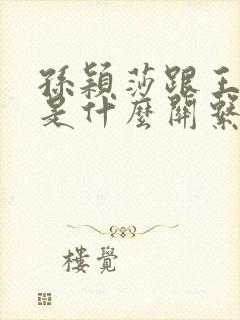 孫穎莎跟王
是什麼關繫
樓覺